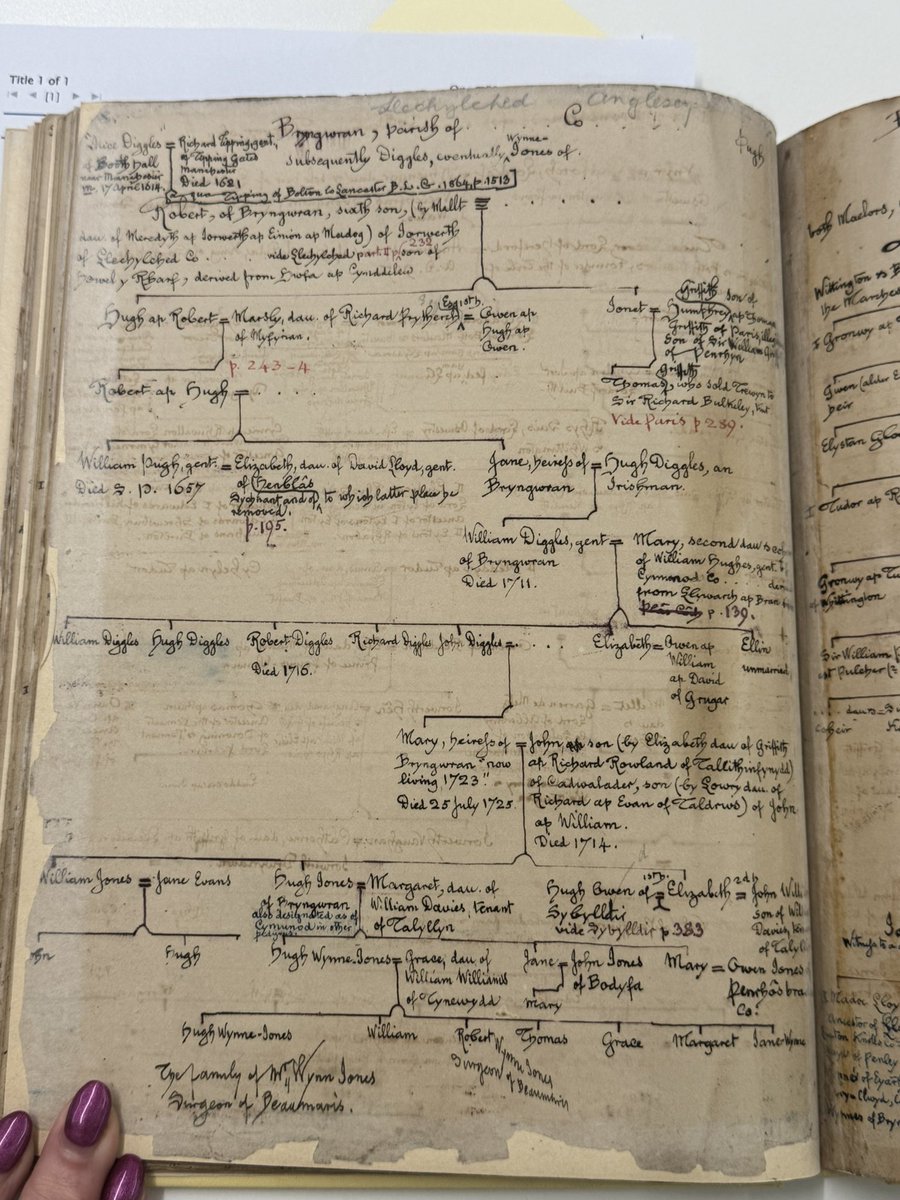 Title 1 of 1
[1]
Llechylched Anglesey
Bryngwran, parish of . . . . Co . . . .
subsequently Diggles, eventually Wynne-Jones of.
Alice Diggles = Richard Tipping, gent.
of Booth Hall
near Manchester
m. 17 April 1614.
of Tipping Gates
Manchester
Died 1621
Tipping of Bolton le Lancaster B.L.G. 1864, p. 1513
Hugh
Robert, of Bryngwran, sixth son, (by Mallt = . . . . .
dau. of Meredyth ap Iorwerth ap Einion ap Madog) of Iorwerth
of Llechylched Co . . . vide Llechylched part II p. 232 son of
Howel y Rharf, derived from Hwfa ap Cynddelw
Hugh ap Robert = Marsly, dau. of Richard Prytherch Esq 1st h. = Owen ap
of Myfyrian.
Hugh ap
Owen.
p. 243-4
Ionet = Griffith son of
Humphrey ap Thomas
Griffith of Paris, illeg.
son of Sir William
of Penrhyn
Robert ap Hugh = . . . .
Thomas Griffith, who sold Trewyn to
Sir Richard Bulkeley, knt
Vide Paris p 289.
William Pugh, gent. = Elizabeth, dau. of David Lloyd, gent.
Died S. P. 1657
of Henblâs
and of, to which latter place he
removed.
p. 195.
Jane, heiress of = Hugh Diggles, an
Bryngwran Irishman.
William Diggles, gent = Mary, second dau
of Bryngwran
Died 1711.
of William Hughes, gent.
Cymunod Co . . . .
from Llywarch ap Bran
p. 139.
William Diggles Hugh Diggles Robert Diggles Richard Diggles John Diggles = . . . .
Died 1716.
Elizabeth = Owen ap
William
ap David
of Grugar
Ellin
unmarried
Mary, heiress of = John, son (by Elizabeth dau of Griffith
Bryngwran "now
living 1723"
Died 25 July 1725
ap Richard Rowland of Tallithinfynydd)
of Cadwalader, son (by Lowry dau. of
Richard ap Evan of Taldrws) of John
ap William.
Died 1714.
William Jones = Jane Evans
Hugh Jones = Margaret, dau. of
of Bryngwran
also designated as of
Cymunod in other
William Davies, tenant
of Talyllyn
Hugh Owen of 1st h. = Elizabeth = 2d h John
Sybylldir
vide Sybylldir p 383
son of
Davies,
of
Hugh
Hugh Wynne-Jones = Grace, dau. of
William Williams
of Tynewydd
Jane = John Jones
of Bodyfa
Mary
Mary = Owen Jones
Penrhôs
Co.
Hugh Wynne-Jones William Robert Thomas Grace Margaret Jane Wynne
Wynne Jones
Surgeon of Beaumaris
The family of Mr Wynn Jones
Surgeon of Beaumaris.
both Maelors,
Wittington
the Marches
Gronwy ap
Gwen (alder
heir
Elystan
Tudor ap
Gronwy ap
of Whittington
Sir William